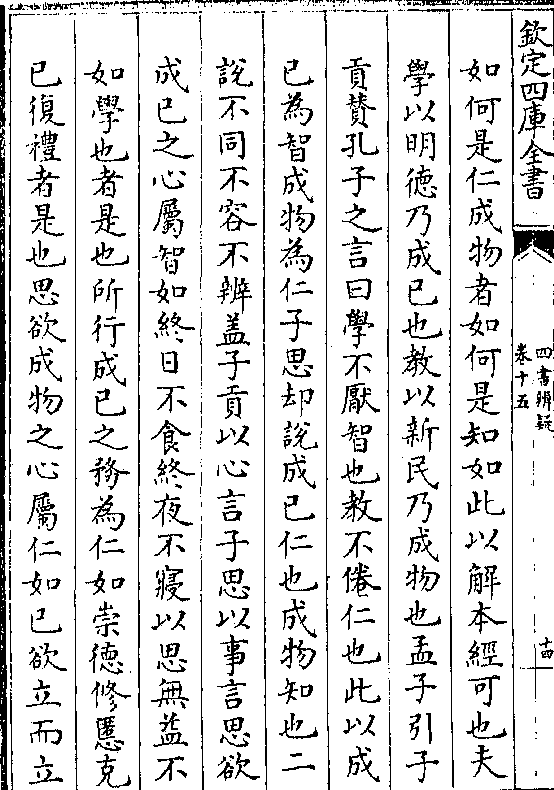 欽定四庫全書
四書辨疑
卷十五
十四
如何是仁成物者如何是知如此以解本經可也夫
學以明德乃成已也教以新民乃成物也孟子引子
貢贊孔子之言曰學不厭智也教不倦仁也此以成
已為智成物為仁子思却說成已仁也成物知也二
說不同不容不辨盖子貢以心言子思以事言思欲
成已之心屬智如終日不食終夜不寢以思無益不
如學也者是也所行成已之務為仁如崇德修慝克
已復禮者是也思欲成物之心屬仁如已欲立而立